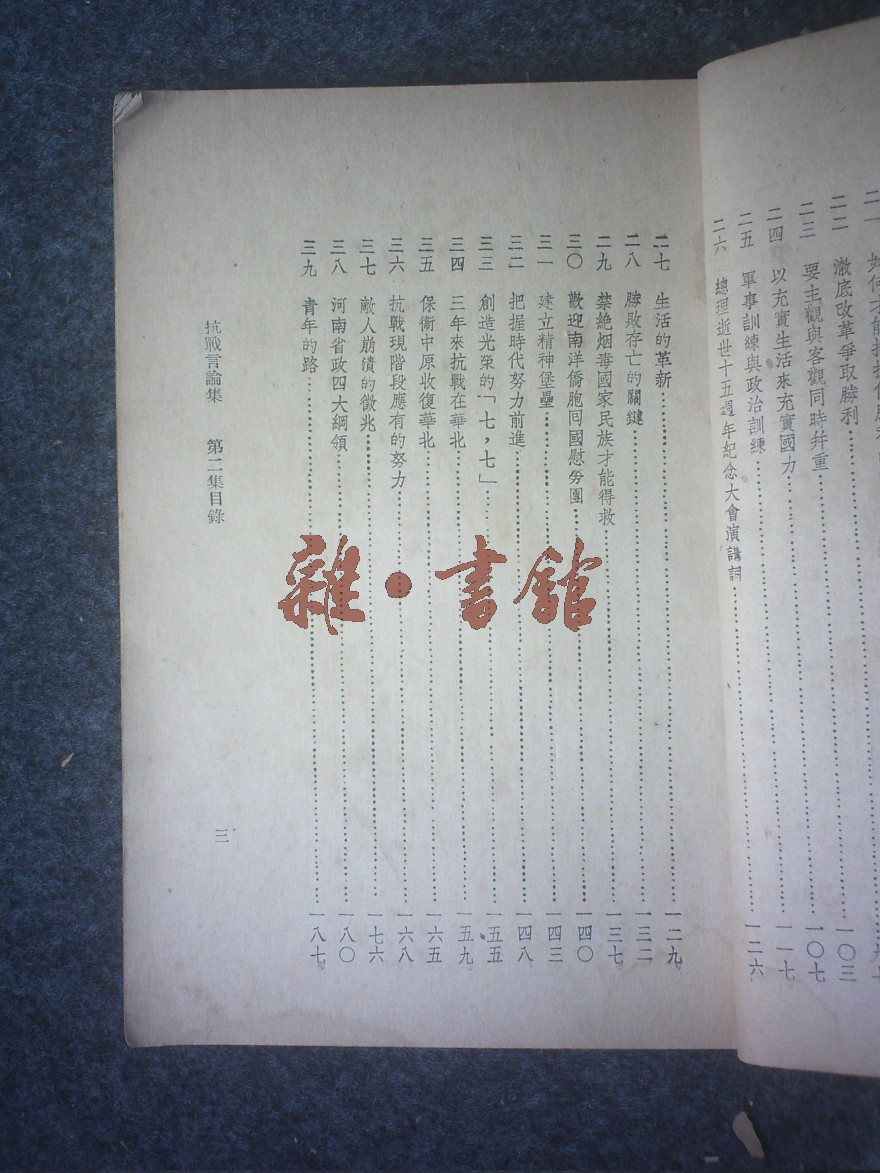 澈底改革爭取勝利……一〇三
二三 要主觀與客觀同時幷重……一〇七
二四 以充實生活來充實國力……一一七
二五 軍事訓練與政治訓練……一二六
二六 總理逝世十五週年紀念大會演講詞……
二七 生活的革新……一二九
二八 勝敗存亡的關鍵……一三二
二九 禁絕烟毒國家民族才能得救……一三七
三〇 歡迎南洋僑胞回國慰勞團……一四〇
三一 建立精神堡壘……一四三
三二 把握時代努力前進……一四八
三三 創造光榮的「七，七」……一五五
三四 三年來抗戰在華北……一五九
三五 保衛中原收復華北……一六五
三六 抗戰現階段應有的努力……一六八
三七 敵人崩潰的徵兆……一七六
三八 河南省政四大綱領……一八〇
三九 青年的路……一八七
抗戰言論集 第二集目錄
三
雜·書館